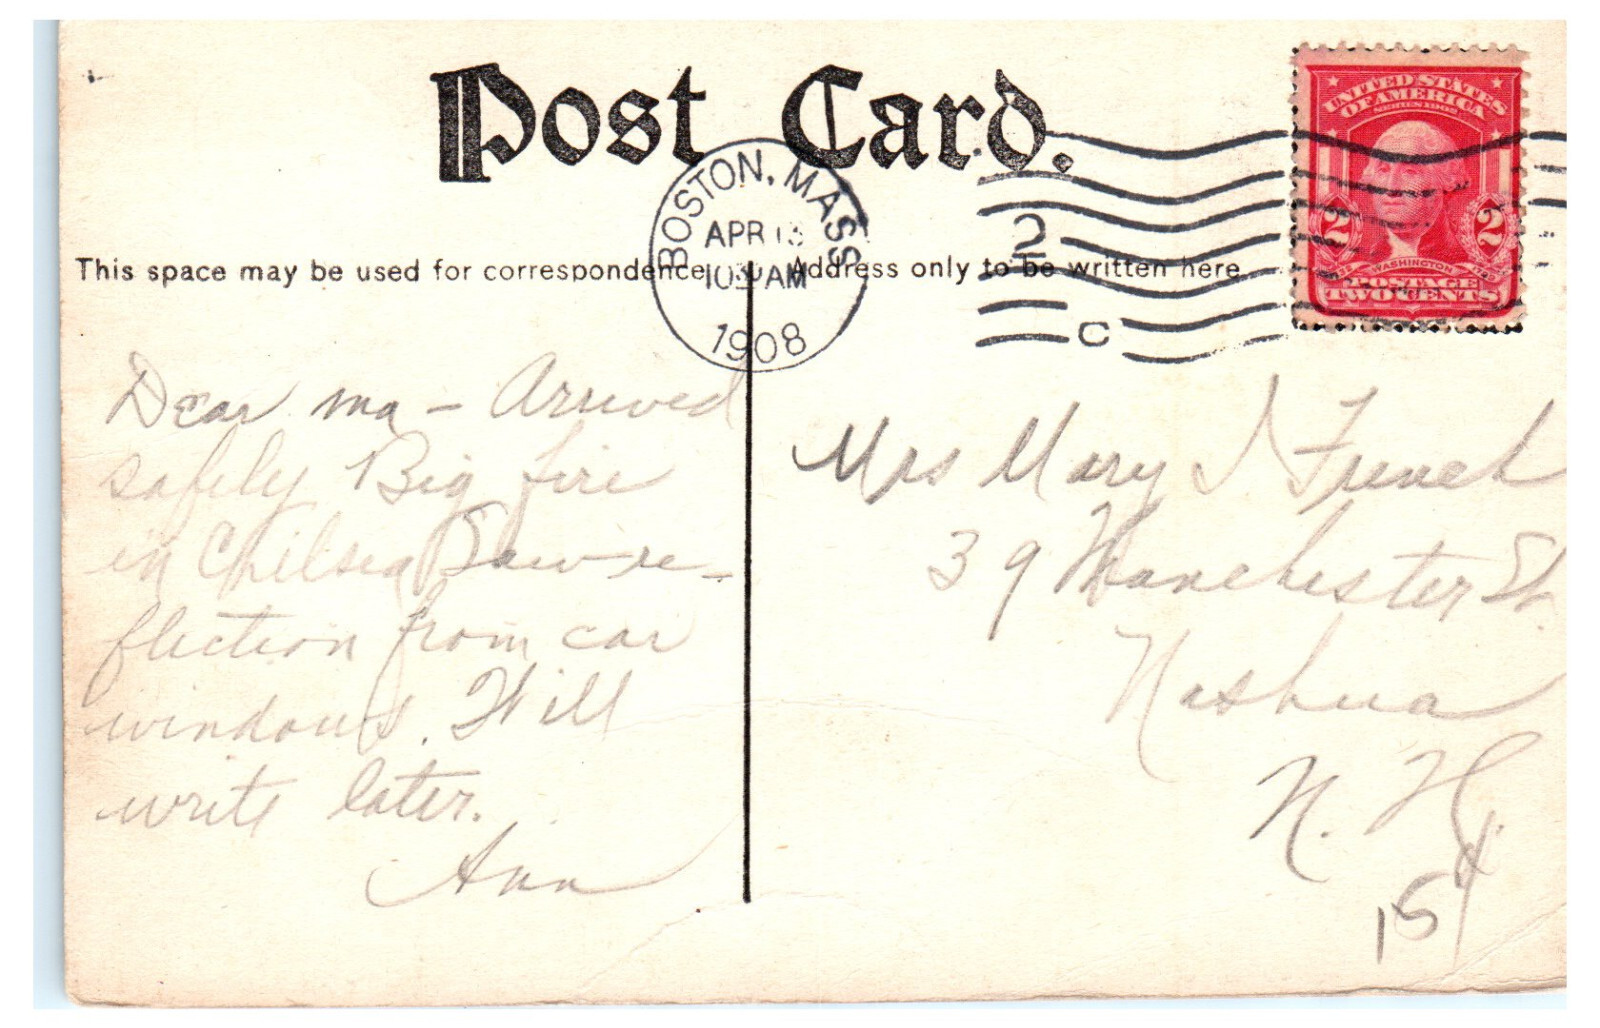 Post Card.
BOSTON, MASS
APR 13
1030 AM
1908
2
C
UNITED STATES
OF AMERICA
SERIES 1902
2 2
1732 WASHINGTON 1799
POSTAGE
TWO CENTS
This space may be used for correspondence
Address only to be written here.
Dear Ma - Arrived
safely Big fire
in Chelsea Saw re-
flection from car
windows. Will
write later.
Ann
Mrs Mary J French
39 Manchester St.
Nashua
N. H.